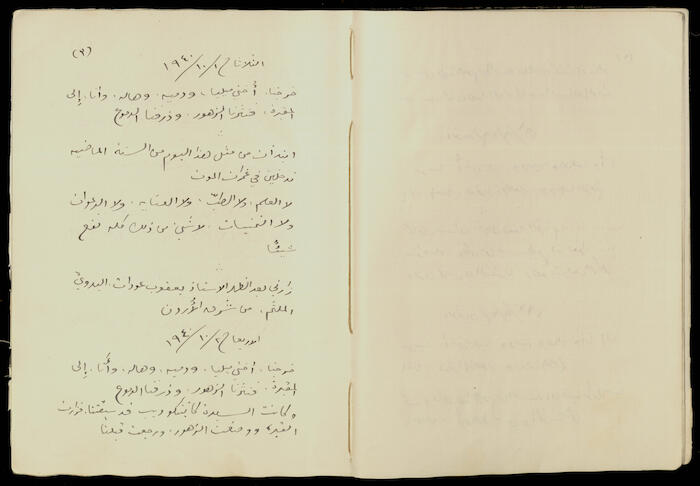 (٣)
الثلاثاء ١/١٠/١٩٤٠
خرجنا، أختي ميليا، ودمية، وهاله، وأنا، إلى
المقبرة، فنثرنا الزهور، وذرفنا الدموع
ابتدأت من مثل هذا اليوم من السنة الماضيه
تدخلين في غمرات الموت
لا العلم، ولا الطبّ، ولا العنايه، ولا الدعوات
ولا التمنيات، لا شيئ من ذلك كله نفع
شيئًا
زارني بعد الظهر الاستاذ يعقوب عودات، البدويّ
الملثّم، من شرق الأردن
الاربعاء ٢/١٠/١٩٤٠
خرجنا، أختي ميليا، ودميه، وهاله، وأنا، إلى
المقبرة، فنثرنا الزهور، وذرفنا الدموع
وكانت السيدة قد سبقتنا، فزارت
القبر، ووضعت الزهور، ورجعت قبلنا